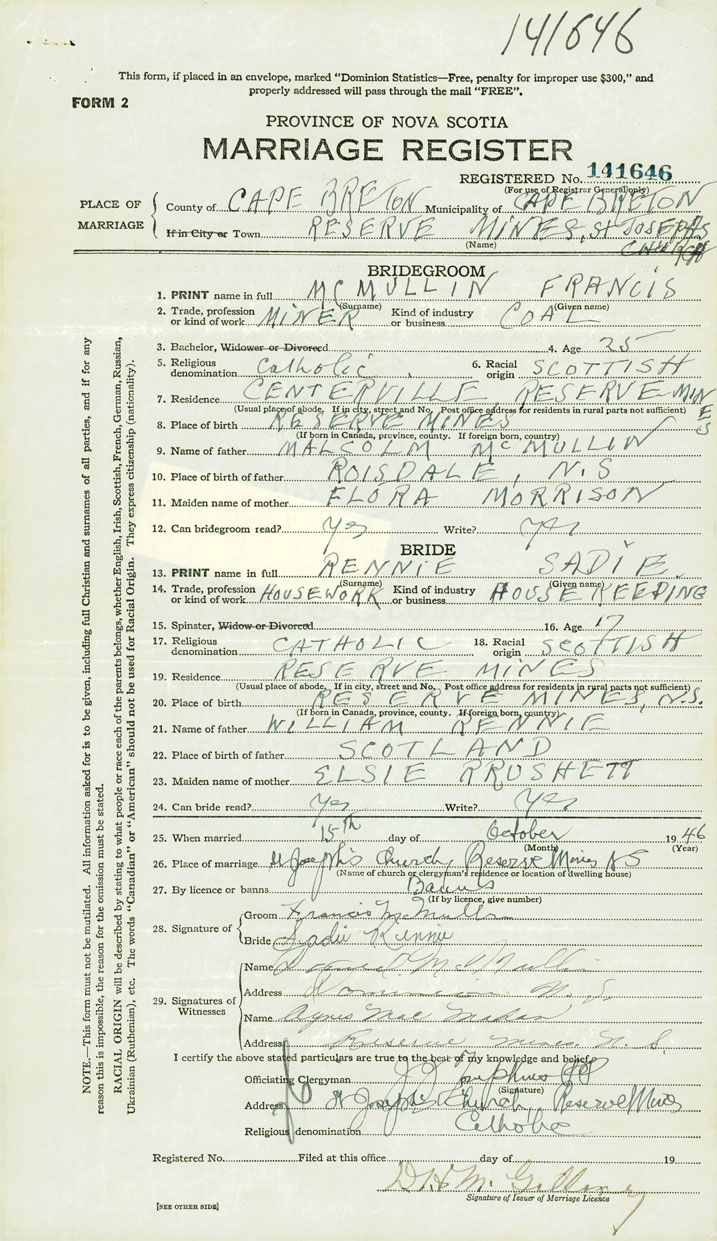 141646
This form, if placed in an envelope, marked “Dominion Statistics—Free, penalty for improper use $300,” and
properly addressed will pass through the mail “FREE”.
FORM 2
PROVINCE OF NOVA SCOTIA
MARRIAGE REGISTER
REGISTERED No. 141646
(For use of Registrar General only)
PLACE OF MARRIAGE
County of CAPE BRETON Municipality of CAPE BRETON
If in City or Town RESERVE MINES, St JOSEPHS
(Name) CHURCH
BRIDEGROOM
1. PRINT name in full MCMULLIN FRANCIS
(Surname) (Given name)
2. Trade, profession or kind of work MINER Kind of industry or business COAL
3. Bachelor, Widower or Divorced 4. Age 25
5. Religious denomination Catholic 6. Racial origin SCOTTISH
7. Residence CENTERVILLE, RESERVE MINES
(Usual place of abode. If in city, street and No. Post office address for residents in rural parts not sufficient)
8. Place of birth RESERVE MINES
(If born in Canada, province, county. If foreign born, country)
9. Name of father MALCOLM MCMULLIN
10. Place of birth of father BOISDALE, N.S
11. Maiden name of mother FLORA MORRISON
12. Can bridegroom read? Yes Write? Yes
BRIDE
13. PRINT name in full RENNIE SADIE
(Surname) (Given name)
14. Trade, profession or kind of work HOUSEWORK Kind of industry or business HOUSEKEEPING
15. Spinster, Widow or Divorced 16. Age 17
17. Religious denomination CATHOLIC 18. Racial origin SCOTTISH
19. Residence RESERVE MINES
(Usual place of abode. If in city, street and No. Post office address for residents in rural parts not sufficient)
20. Place of birth RESERVE MINES, N.S.
(If born in Canada, province, county. If foreign born, country)
21. Name of father WILLIAM RENNIE
22. Place of birth of father SCOTLAND
23. Maiden name of mother ELSIE PRUSHETT
24. Can bride read? Yes Write? Yes
25. When married 15th day of October 1946
(Month) (Year)
26. Place of marriage St Joseph's Church, Reserve Mines NS
(Name of church or clergyman's residence or location of dwelling house)
27. By licence or banns Banns
(If by licence, give number)
28. Signature of
Groom Francis McMullin
Bride Sadie Rennie
29. Signatures of Witnesses
Name McMullin
Address Dominion N.S.
Name Agnes Mac
Address Reserve Mines, N.S.
I certify the above stated particulars are true to the best of my knowledge and belief.
Officiating Clergyman J J Tompkins PP
(Signature)
Address St Joseph's Church, Reserve Mines
Religious denomination Catholic
Registered No. Filed at this office day of 19
Signature of Issuer of Marriage Licence
[SEE OTHER SIDE]
NOTE.—This form must not be mutilated. All information asked for is to be given, including full Christian and surnames of all parties, and if for any
reason this is impossible, the reason for the omission must be stated.
RACIAL ORIGIN will be described by stating to what people or race each of the parents belongs, whether English, Irish, Scottish, French, German, Russian,
Ukrainian (Ruthenian), etc. The words “Canadian” or “American” should not be used for Racial Origin. They express citizenship (nationality).